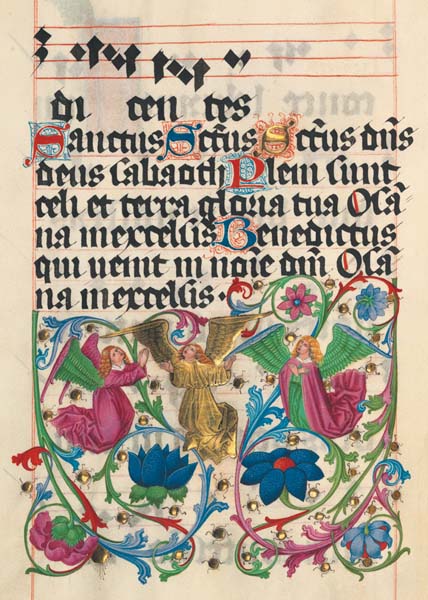 di cen tes
Sanctus Sctus Sctus dns
deus sabaoth Pleni sunt
celi et terra gloria tua Osa
na in excelsis Benedictus
qui venit in noie dni Osa
na in excelsis.